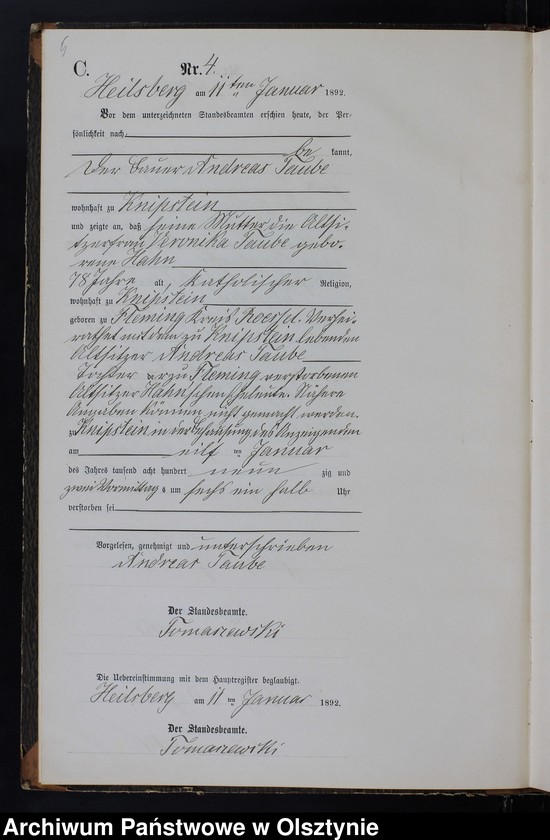 C. Nr. 4.
Heilsberg am 11ten Januar 1892.
Vor dem unterzeichneten Standesbeamten erschien heute, der Per-
sönlichkeit nach,
be kannt,
der Bauer Andreas Taube
wohnhaft zu Knipstein
und zeigte an, daß seine Mutter die Altsi-
tzerfrau Veronika Taube gebo-
rene Hahn
78 Jahre alt, Katholischer Religion,
wohnhaft zu Knipstein
geboren zu Fleming Kreis Roessel. Verhei-
rathet mit dem zu Knipstein lebenden
Altsitzer Andreas Taube
Tochter der zu Fleming verstorbenen
Altsitzer Hahn'schen Eheleute. Nähere
Angaben können nicht gemacht werden.
zu Knipstein in der Behausung des Anzeigenden
am eilf ten Januar
des Jahres tausend acht hundert neun zig und
zwei Vormittags um sechs ein halb Uhr
verstorben sei
Vorgelesen, genehmigt und unterschrieben
Andreas Taube
Der Standesbeamte.
Tomaszewski
Die Uebereinstimmung mit dem Hauptregister beglaubigt.
Heilsberg am 11 ten Januar 1892.
Der Standesbeamte.
Tomaszewski
Archiwum Państwowe w Olsztynie